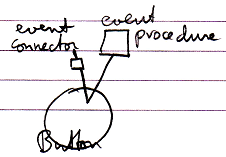 event
connector
event
procedure
Button